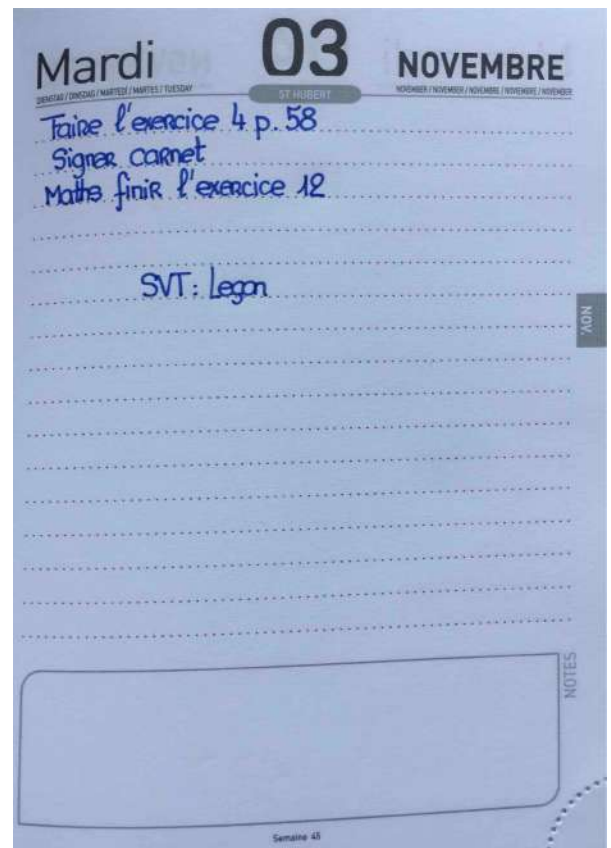 Mardi 03 NOVEMBRE
DIENSTAG / DINSDAG / MARTEDÌ / MARTES / TUESDAY
ST HUBERT
NOVEMBER / NOVEMBER / NOVIEMBRE / NOVEMBRE / NOVEMBER
Faire l'exercice 4 p. 58
Signer carnet
Maths finir l'exercice 12
SVT : Leçon
NOV.
NOTES
Semaine 45